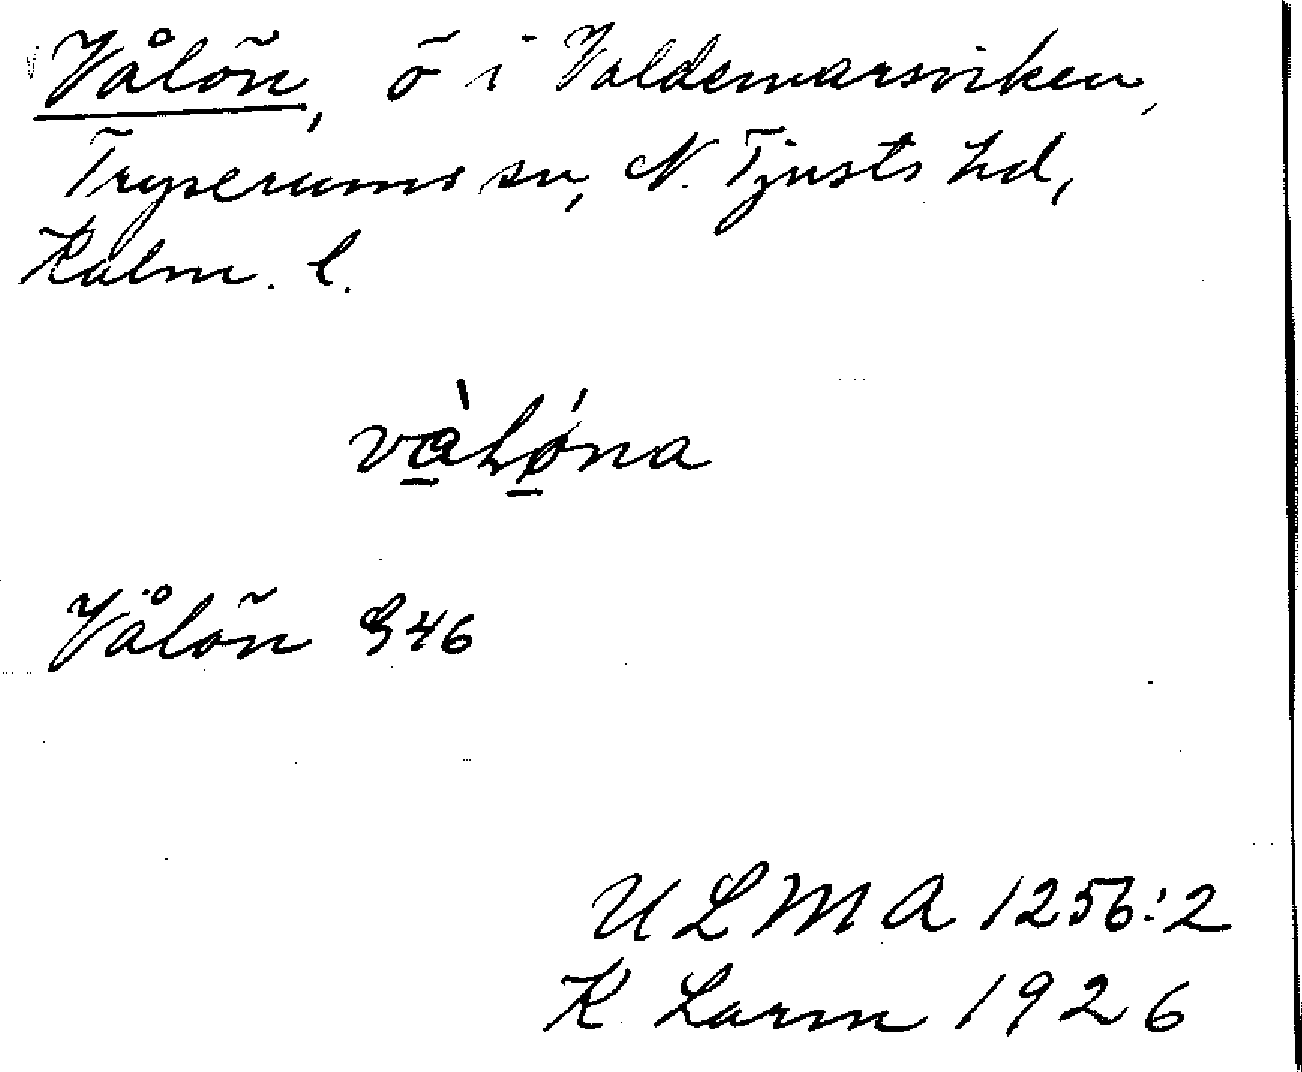 Vålön, ö i Valdemarsviken,
Tryserums sn, N. Tjusts hd,
Kalm. l.
Vålön G46
ULMA 1256:2
K Larm 1926